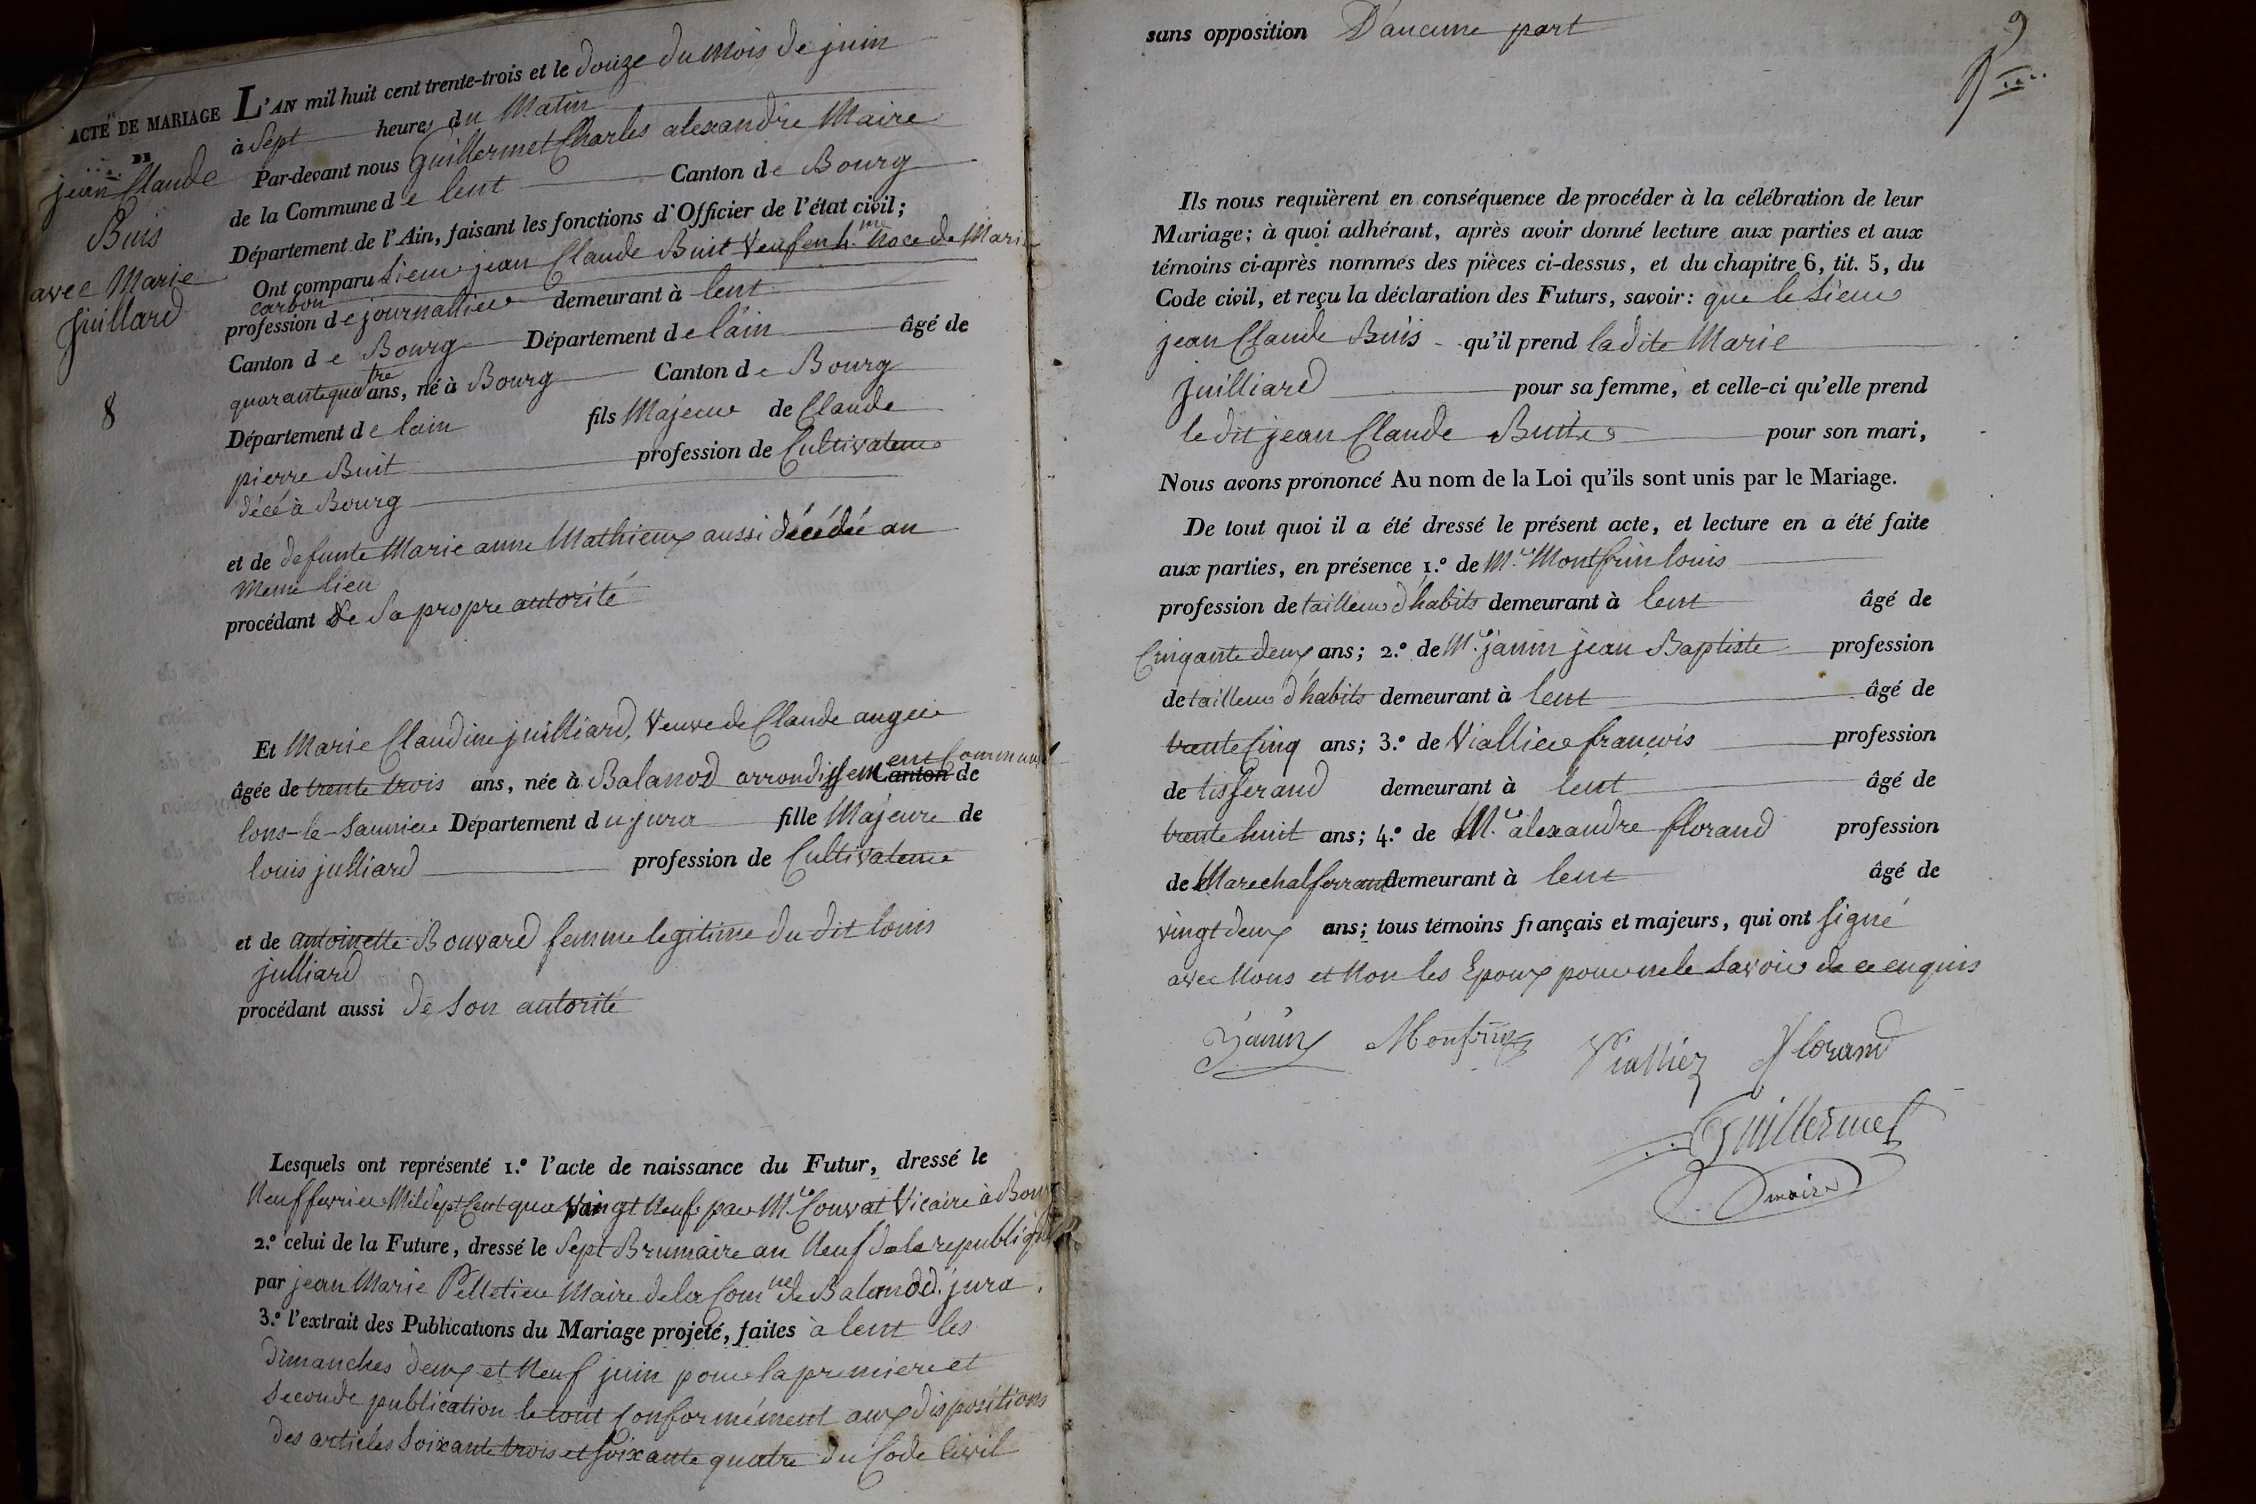 ACTE DE MARIAGE
DE
jean Claude
Buis
avec Marie
Juillard
8
L'AN mil huit cent trente-trois et le douze du mois de juin
à Sept heures du Matin
Par-devant nous Guillermet Charles alexandre Maire
de la Commune de lent Canton de Bourg
Département de l'Ain, faisant les fonctions d'Officier de l'état civil;
Ont comparu Sieur jean Claude Buit Veuf en Noce de Marie
carbon
profession de journallier demeurant à lent
Canton de Bourg Département de lain âgé de
quarante quatre ans, né à Bourg Canton de Bourg
Département de lain fils Majeur de Claude
pierre Buit profession de Cultivateur
décé à Bourg
et de defunte Marie anne Mathieux aussi décédée au
meme lieu
procédant de Sa propre autorité
Et Marie Claudine juilliard, Veuve de Claude
âgée de trente trois ans, née à Balanod arrondissement Communal Canton de
lons-le-Saunier Département du jura fille Majeure de
louis julliard profession de Cultivateur
et de antoinette Bouvard femme legitime du dit louis
julliard
procédant aussi de Son autorité
Lesquels ont représenté 1.º l'acte de naissance du Futur, dressé le
Neuf fevrier Mil Sept Cent quatre Vaingt Neuf par Mr Couvat Vicaire à Bourg
2.º celui de la Future, dressé le Sept Brumaire an Neuf de la republique
par jean Marie Pelletier Maire de la Comne de Balanod, jura.
3.º l'extrait des Publications du Mariage projeté, faites à lent les
dimanches deux et Neuf juin pour la premiere et
Seconde publication le tout Conformément aux dispositions
des articles Soixante trois et Soixante quatre du Code Civil
9
sans opposition D'aucune part
Ils nous requièrent en conséquence de procéder à la célébration de leur
Mariage; à quoi adhérant, après avoir donné lecture aux parties et aux
témoins ci-après nommés des pièces ci-dessus, et du chapitre 6, tit. 5, du
Code civil, et reçu la déclaration des Futurs, savoir: que le Sieur
jean Claude Buis qu'il prend la dite Marie
juilliard pour sa femme, et celle-ci qu'elle prend
le dit jean Claude pour son mari,
Nous avons prononcé Au nom de la Loi qu'ils sont unis par le Mariage.
De tout quoi il a été dressé le présent acte, et lecture en a été faite
aux parties, en présence 1.º de Mr Montfrin louis
profession de tailleur d'habits demeurant à lent âgé de
Cinqante deux ans; 2.º de Mr janin jean Baptiste profession
de tailleur d'habits demeurant à lent âgé de
trente Cinq ans; 3.º de Viallier francois profession
de tisserand demeurant à lent âgé de
trente huit ans; 4.º de Mr alexandre florand profession
de Marechal ferrant demeurant à lent âgé de
vingt deux ans; tous témoins français et majeurs, qui ont signé
avec Nous et Non les Epoux pour ne le Savoir de ce enquis
Janin Monfrin Viallier Florand
Guillermet
maire